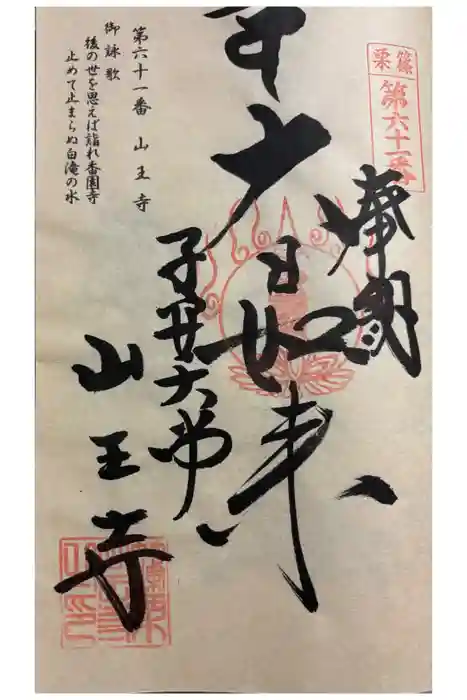 篠栗
第六十一番
奉閲
大日如来
子安大師
山王寺
第六十一番 山王寺
御詠歌
後の世を思えば詣れ香園寺
止めて止まらぬ白滝の水